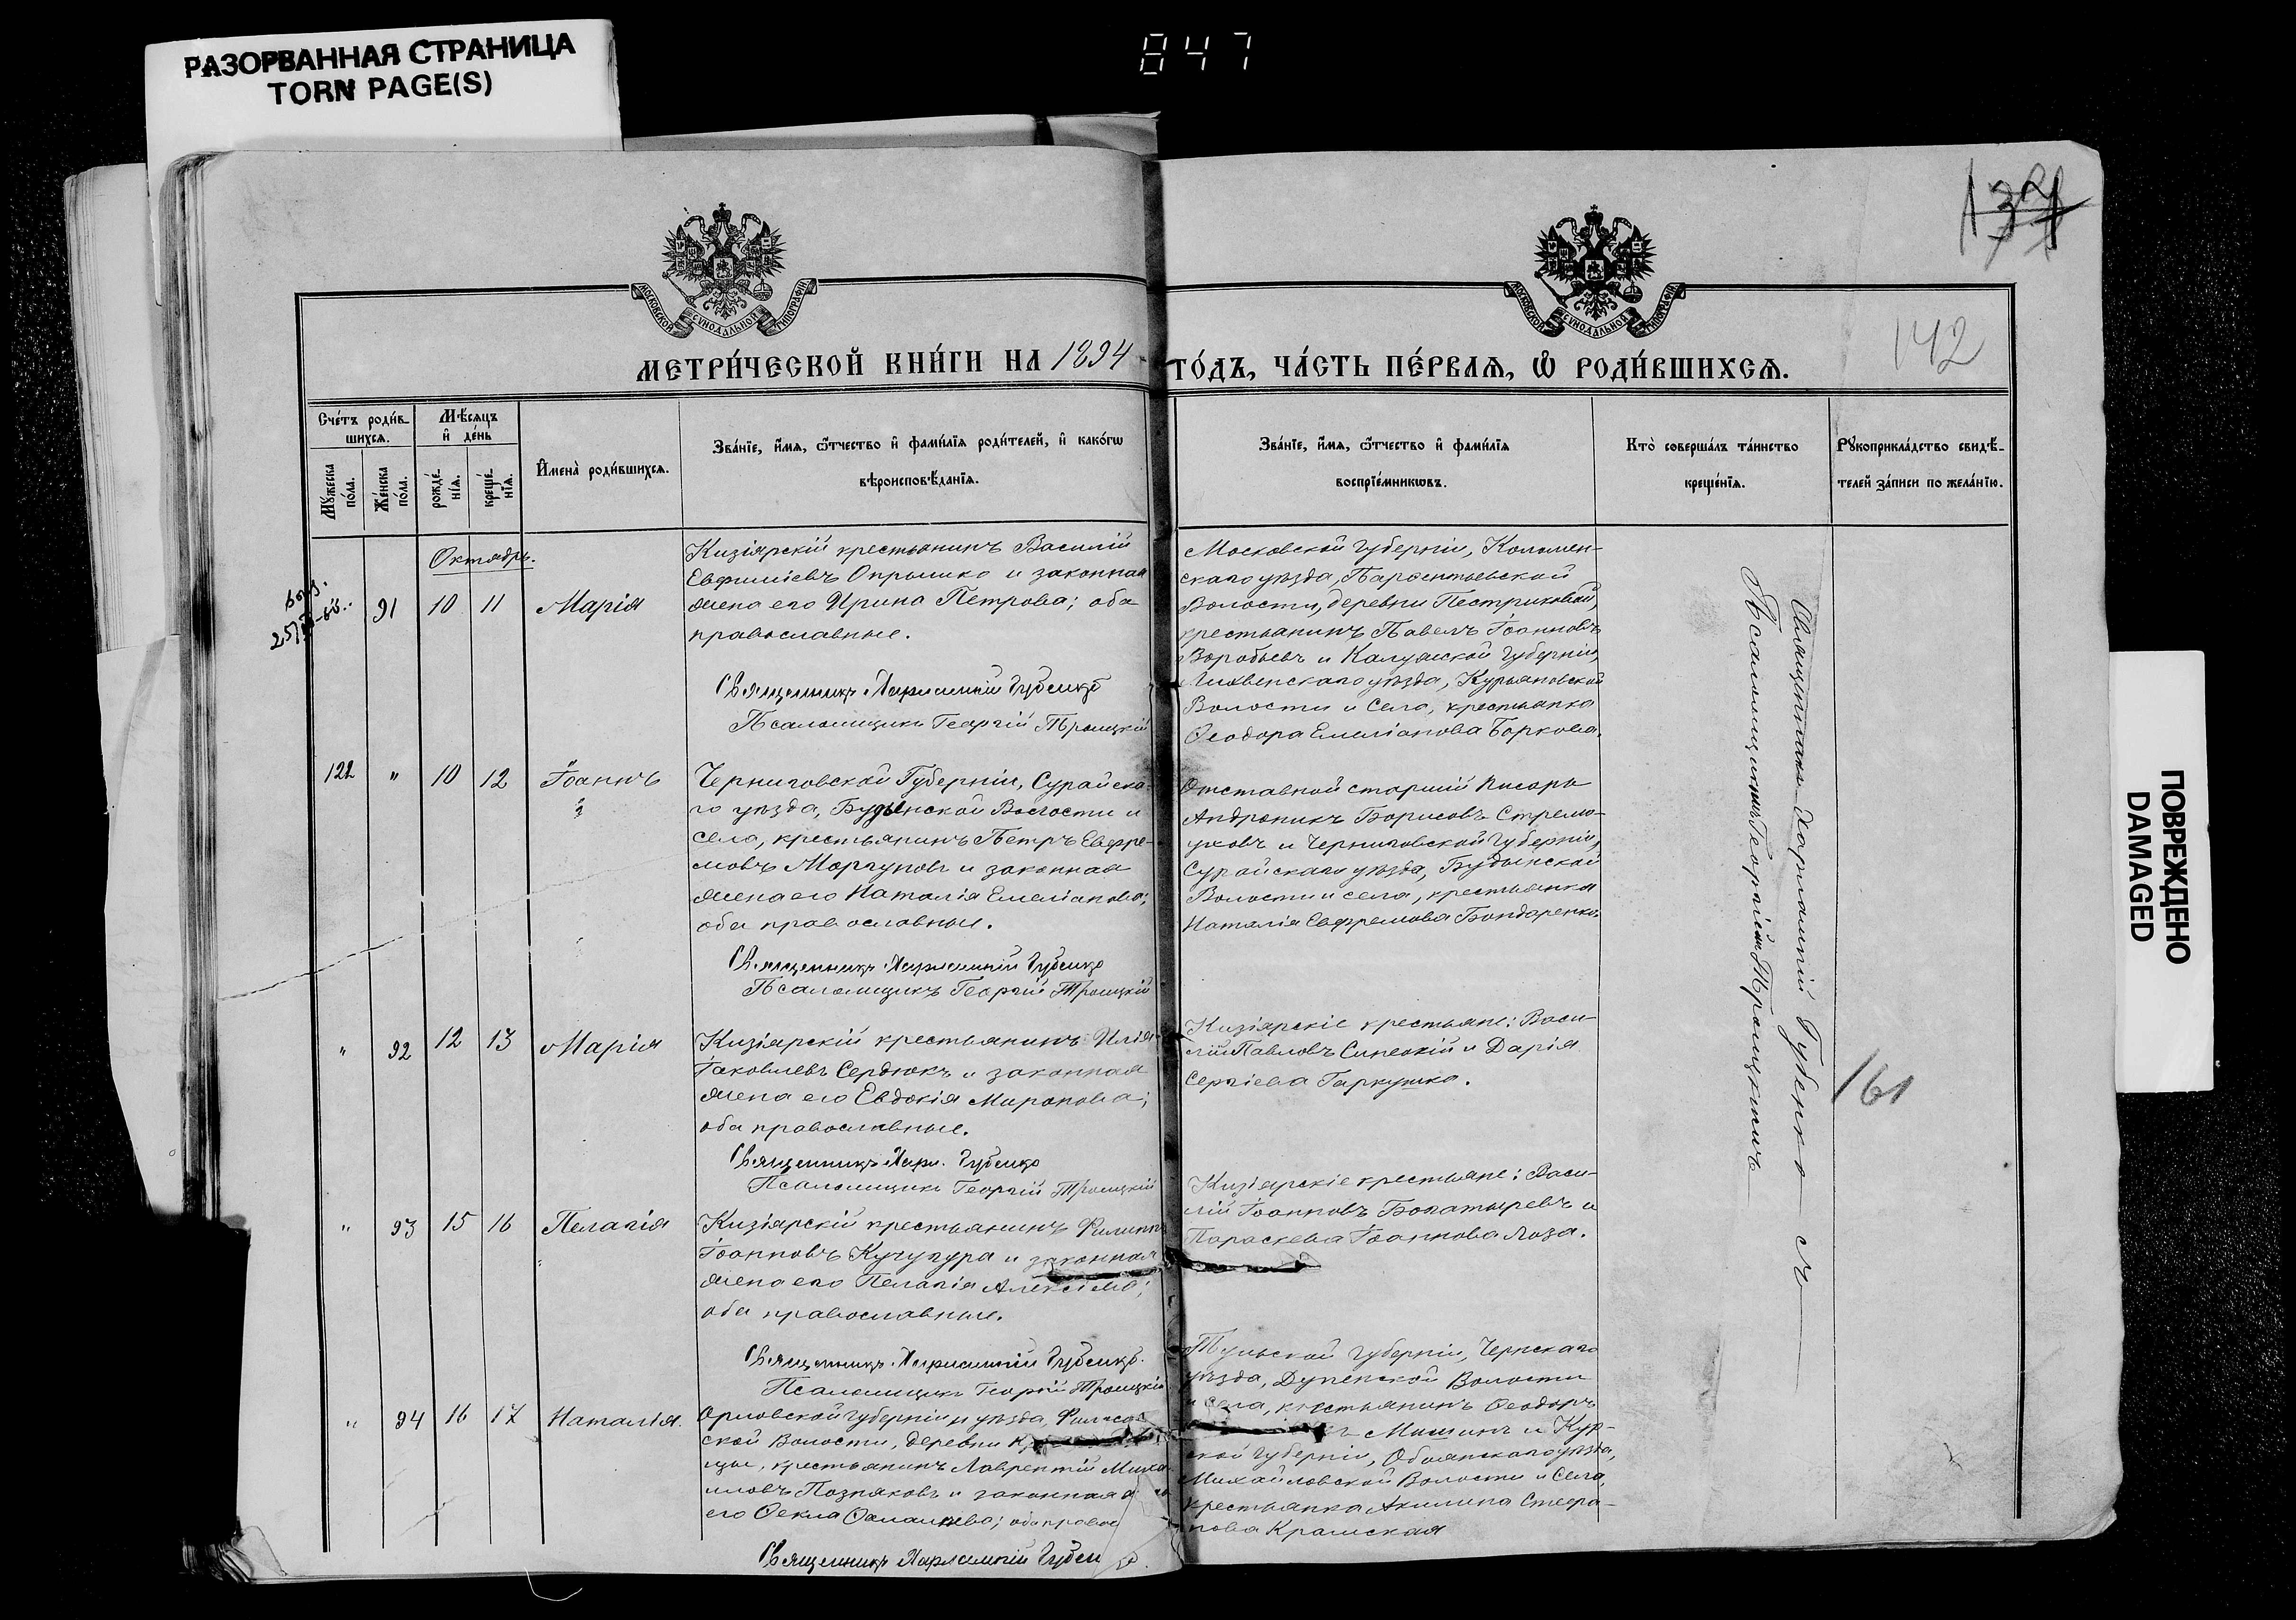 РАЗОРВАННАЯ СТРАНИЦА
TORN PAGE(S)
847
142
МОСКОВСКОЙ СУНОДАЛЬНОЙ ТИПОГРАФІИ
МОСКОВСКОЙ СУНОДАЛЬНОЙ ТИПОГРАФІИ
МЕТРИ́ЧЕСКОЙ КНИ́ГИ НА 1894
ГО́ДЪ, ЧА́СТЬ ПЕ́РВАѦ, Ѡ҆ РОДИ́ВШИХСѦ.
Сче́тъ роди́в-
шихсѧ.
Мꙋ́жеска по́ла.
Же́нска по́ла.
Мѣ́сѧцъ
и҆ де́нь
рожде́-
нїѧ.
креще́-
нїѧ.
И҆мена̀ роди́вшихсѧ.
Зва́нїе, и҆́мѧ, ѻ҆́тчество и҆ фами́лїѧ роди́телей, и҆ како́гѡ
вѣроисповѣ́данїѧ.
Зва́нїе, и҆́мѧ, ѻ҆́тчество и҆ фами́лїѧ
воспрїе́мникѡвъ.
Кто̀ соверша́лъ та́инство
креще́нїѧ.
Рꙋкоприкла́дство свидѣ́-
телей за́писи по жела́нїю.
Октябрь.
91 10 11 Марія
Кизіярскій крестьянинъ Василій
Евфиміевъ Опрышко и законная
жена его Ирина Петрова; оба
православные.
Священникъ Харлампій Губенко
Псаломщикъ Георгій Троицкій
Московской Губерніи, Коломен-
скаго уѣзда, Парфентьевской
Волости, деревни Пестриковой,
крестьянинъ Павелъ Іоанновъ
Воробьевъ и Калужской Губерніи,
Лихвенскаго уѣзда, Курьяновской
Волости и Села, крестьянка
Ѳеодора Емеліанова Боркова.
122 " 10 12 Іоаннъ
Черниговской Губерніи, Сурайска-
го уѣзда, Будынской Волости и
села, крестьянинъ Петръ Евфре-
мовъ Моргуновъ и законная
жена его Наталія Емеліанова;
оба православные.
Священникъ Харлампій Губенко
Псаломщикъ Георгій Троицкій
Отставной старшій писарь
Андроникъ Борисовъ Стремо-
уховъ и Черниговской Губерніи,
Сурайскаго уѣзда, Будынской
Волости и села, крестьянка
Наталія Евфремова Бондаренко.
" 92 12 13 Марія
Кизіярскій крестьянинъ Илія
Іаковлевъ Сердюкъ и законная
жена его Евдокія Миронова;
оба православные.
Священникъ Харл. Губенко
Псаломщикъ Георгій Троицкій
Кизіярскіе крестьяне: Васи-
лій Павловъ Синескій и Дарія
Сергіева Гаркушка.
" 93 15 16 Пелагія
Кизіярскій крестьянинъ Филиппъ
Іоанновъ Кучугура и законная
жена его Пелагія Алексіева;
оба православные.
Священникъ Харлампій Губенко.
Псаломщикъ Георгій Троицкій
Кизіярскіе крестьяне: Васи-
лій Іоанновъ Богатыревъ и
Параскева Іоаннова Лоза.
" 94 16 17 Наталія.
Орловской Губерніи и уѣзда,
ской Волости, деревни
цы, крестьянинъ Лаврентій Миха-
иловъ Позняковъ и законная
его Ѳекла; оба правос
Священникъ Харлампій Губен
Тульской Губерніи, Чернскаго
уѣзда, Дупенской Волости
и Села, крестьянинъ Ѳеодоръ
Мишинъ и Кур-
ской Губерніи, Обоянскаго уѣзда,
Михайловской Волости и Села,
крестьянка Акилина Стефа-
нова Крамская
Священникъ Харлампій Губенко съ
Псаломщикомъ Георгіемъ Троицкимъ
161
ПОВРЕЖДЕНО
DAMAGED